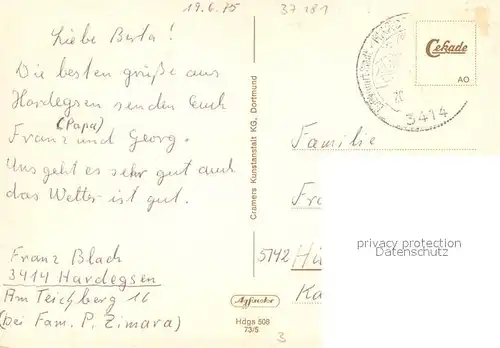 19.6.75
37 181
Liebe Berta!
Die besten grüße aus
Hardegsen senden Euch
(Papa)
Franz und Georg.
Uns geht es sehr gut auch
das Wetter ist gut.
Franz Blach
3414 Hardegsen
Am Teichberg 16
(bei Fam. P. Zimara)
Cramers Kunstanstalt KG, Dortmund
Hdgs 508
73/5
3
Cekade
AO
3414
Familie
Fra
5142 Hü
Ka
privacy protection
Datenschutz